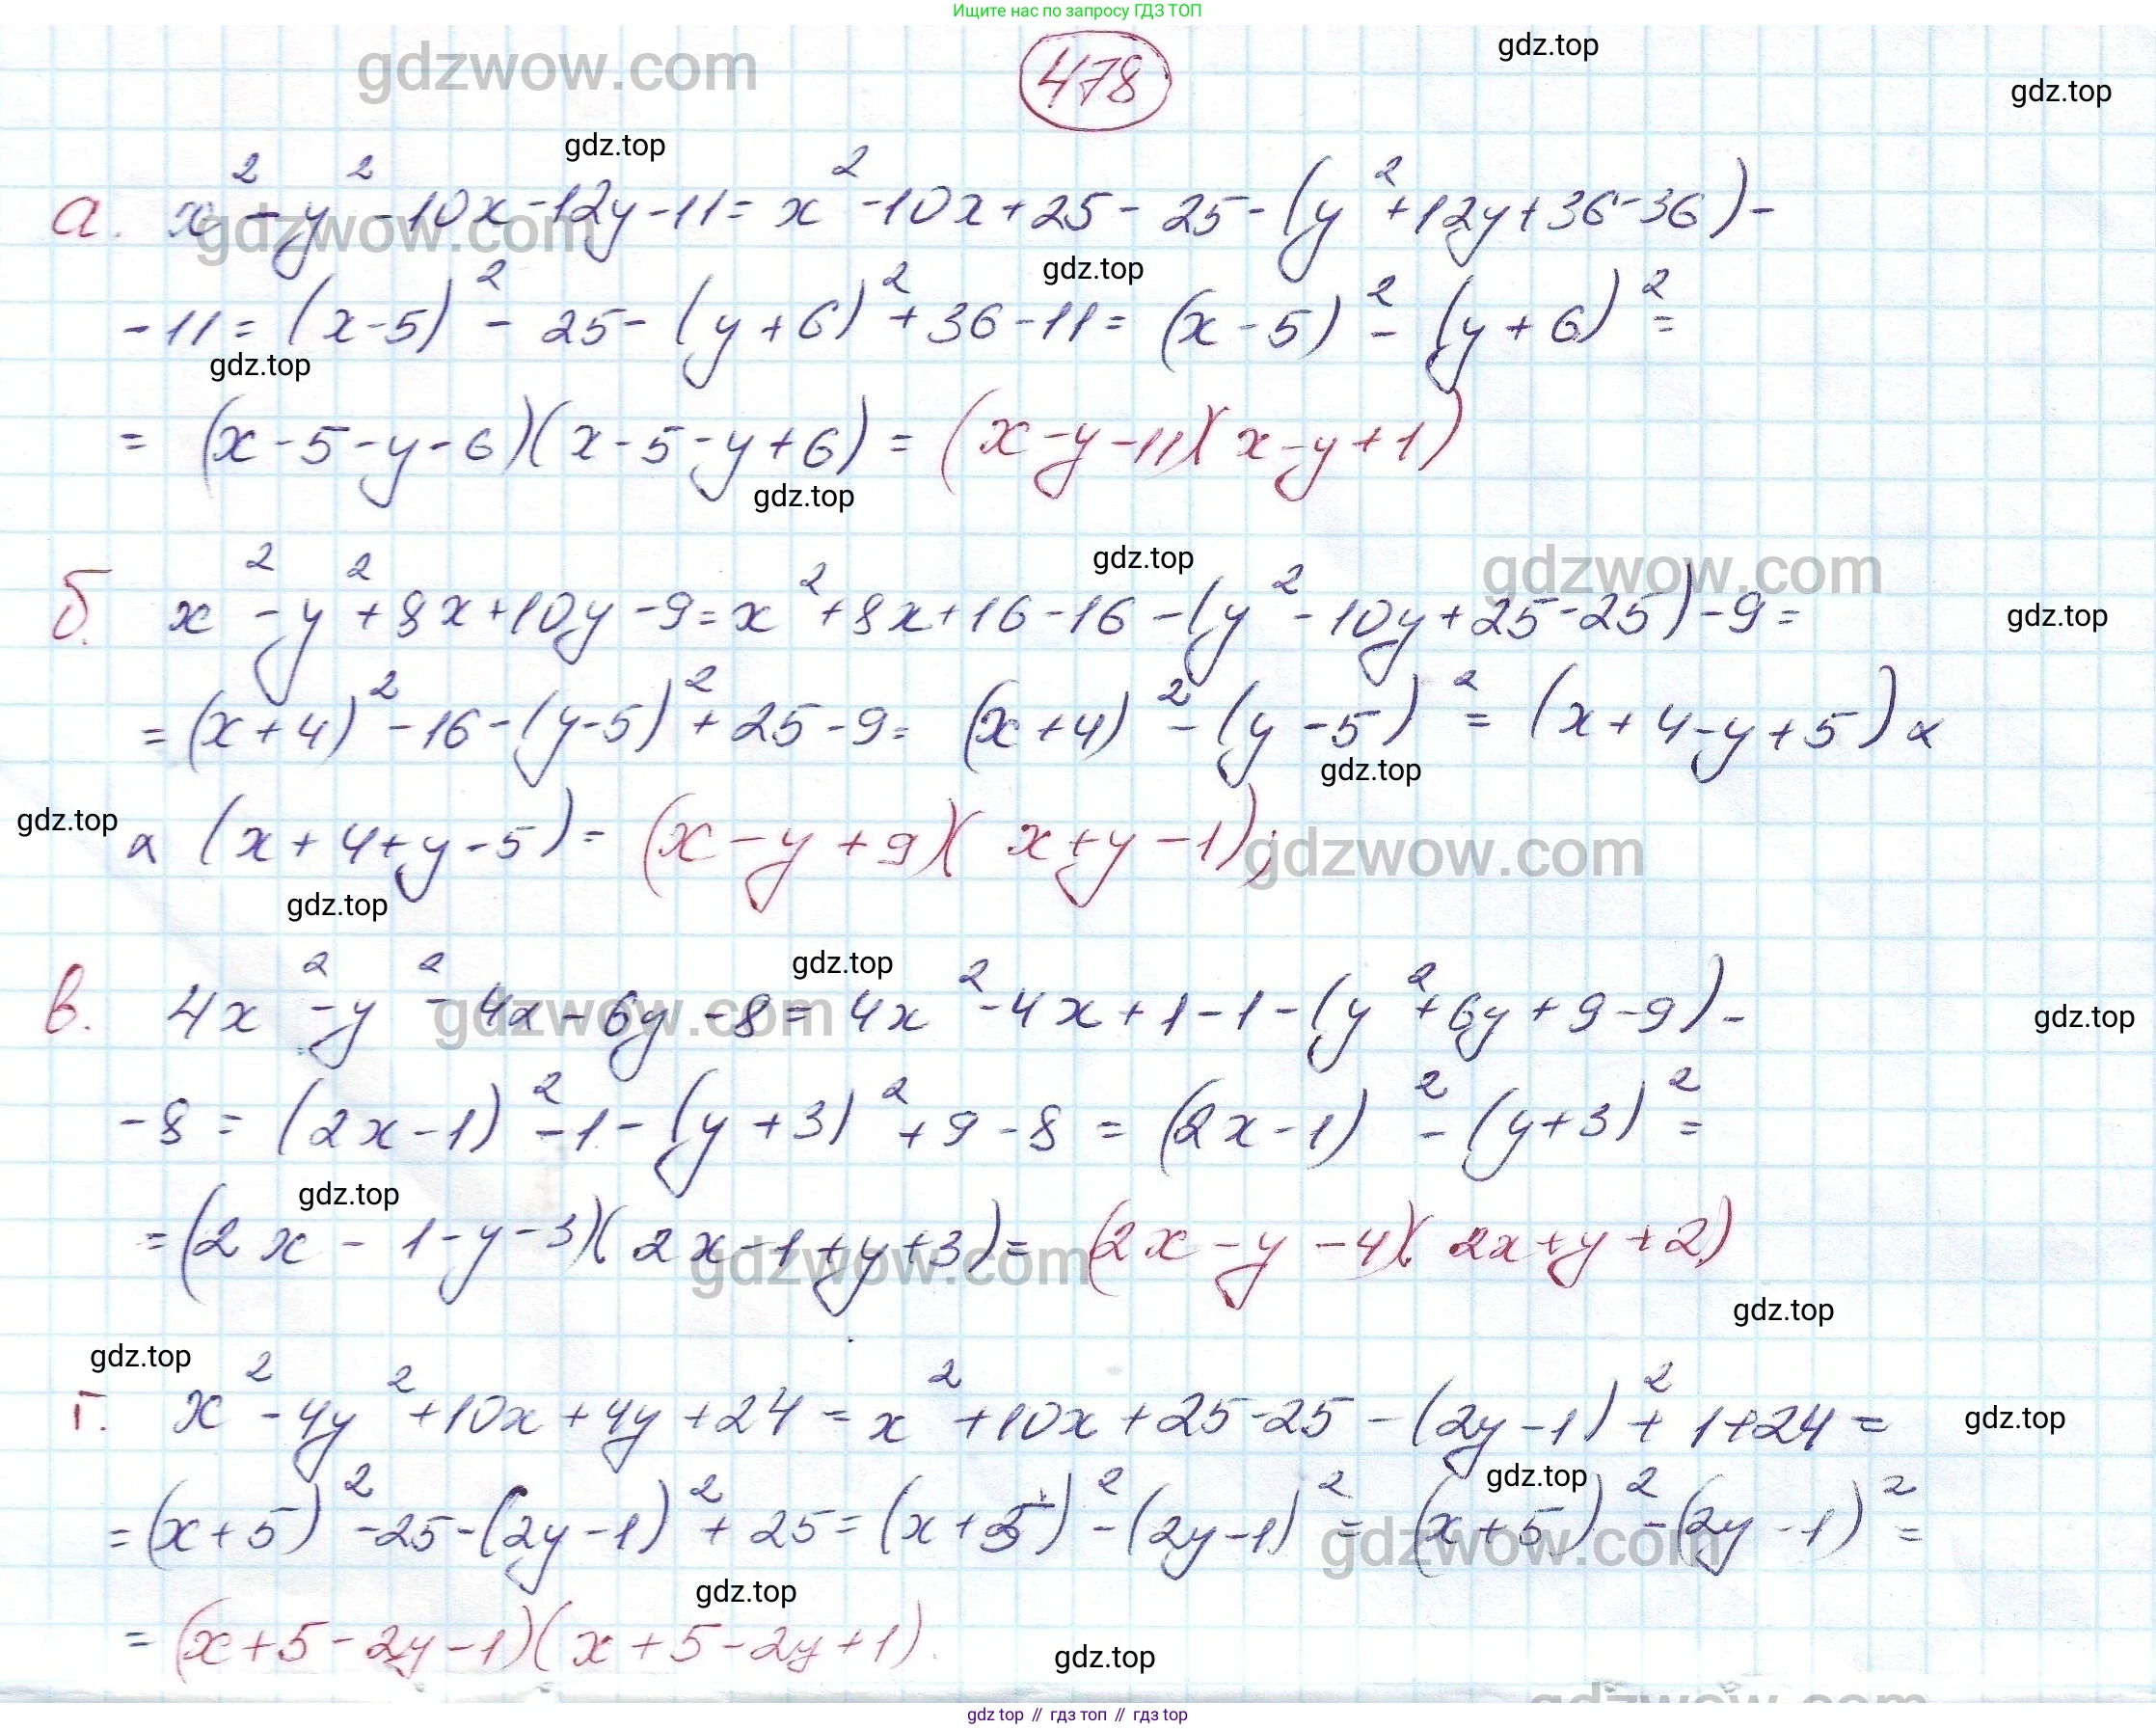 Ищите нас по запросу ГДЗ ТОП
gdzwow.com
478
gdz.top
gdz.top
gdz.top
а. x² - y² - 10x - 12y - 11 = x² - 10x + 25 - 25 - (y² + 12y + 36 - 36) -
gdzwow.com
gdz.top
- 11 = (x - 5)² - 25 - (y + 6)² + 36 - 11 = (x - 5)² - (y + 6)² =
gdz.top
= (x - 5 - y - 6)(x - 5 - y + 6) = (x - y - 11)(x - y + 1)
gdz.top
gdz.top
gdzwow.com
б. x² - y² + 8x + 10y - 9 = x² + 8x + 16 - 16 - (y² - 10y + 25 - 25) - 9 =
gdz.top
= (x + 4)² - 16 - (y - 5)² + 25 - 9 = (x + 4)² - (y - 5)² = (x + 4 - y + 5) ×
gdz.top
gdz.top
× (x + 4 + y - 5) = (x - y + 9)(x + y - 1);
gdzwow.com
gdz.top
gdz.top
в. 4x² - y² - 4x - 6y - 8 = 4x² - 4x + 1 - 1 - (y² + 6y + 9 - 9) -
gdzwow.com
gdz.top
- 8 = (2x - 1)² - 1 - (y + 3)² + 9 - 8 = (2x - 1)² - (y + 3)² =
gdz.top
= (2x - 1 - y - 3)(2x - 1 + y + 3) = (2x - y - 4)(2x + y + 2)
gdzwow.com
gdz.top
gdz.top
г. x² - 4y² + 10x + 4y + 24 = x² + 10x + 25 - 25 - (2y - 1)² + 1 + 24 =
gdz.top
gdz.top
= (x + 5)² - 25 - (2y - 1)² + 25 = (x + 5)² - (2y - 1)² = (x + 5)² - (2y - 1)² =
gdzwow.com
gdz.top
= (x + 5 - 2y - 1)(x + 5 - 2y + 1).
gdz.top
gdzwow.com
gdz top // гдз топ // гдз top